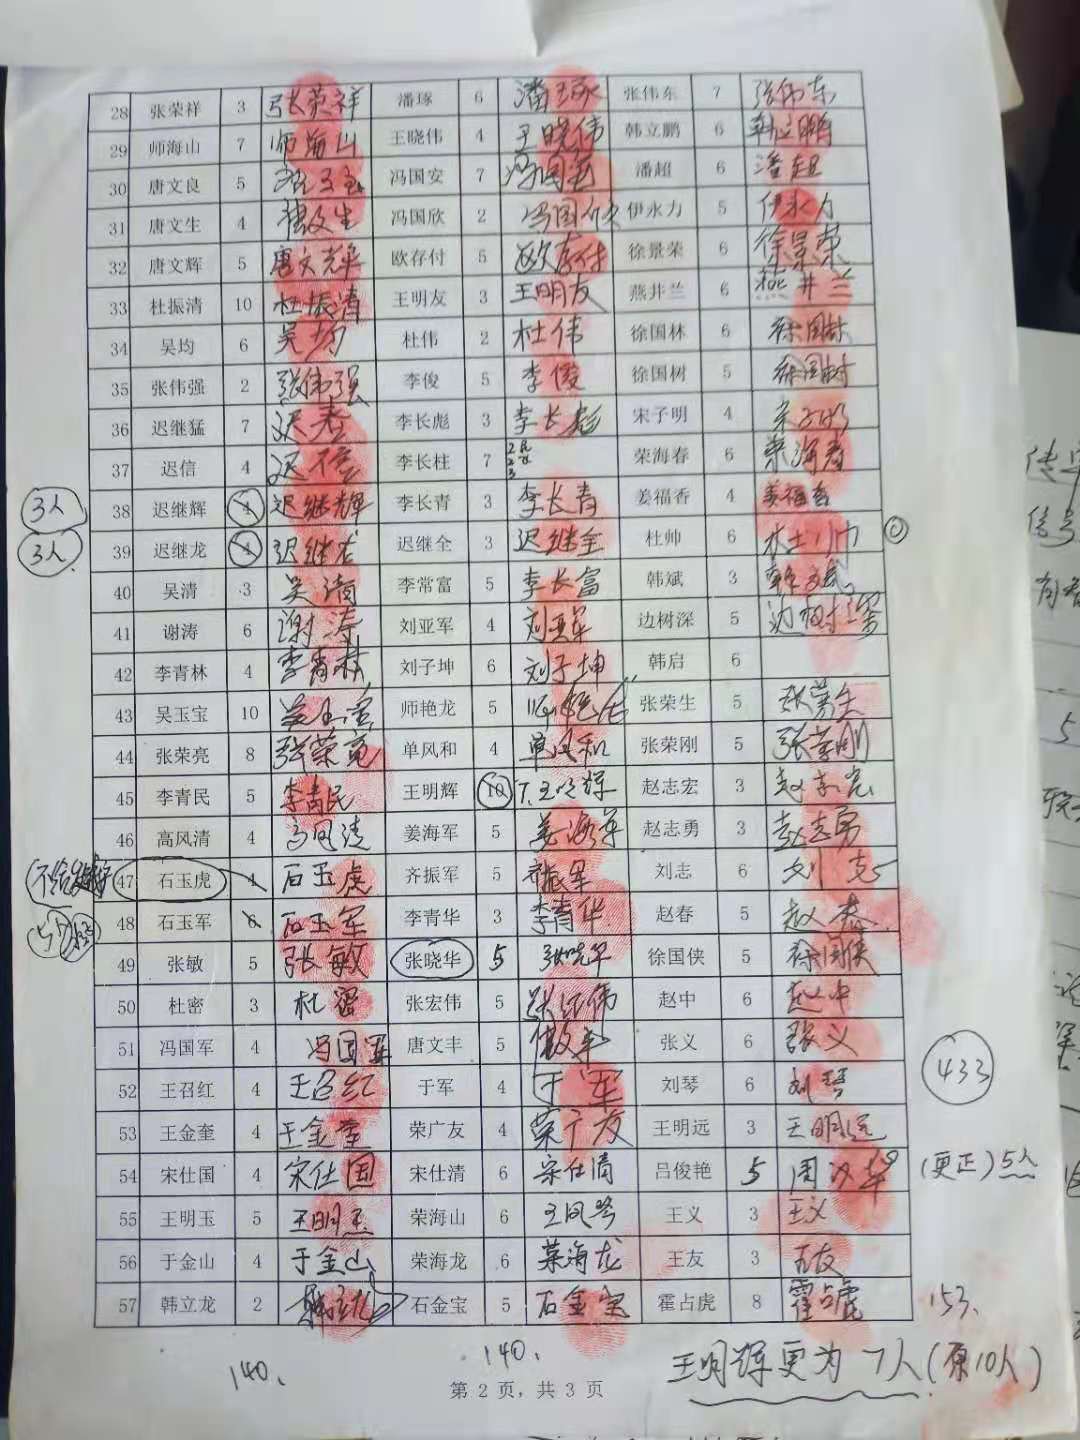 28 张荣祥 3 张荣祥 潘琢 6 潘琢 张伟东 7 张伟东
29 师海山 7 师海山 王晓伟 4 王晓伟 韩立鹏 6 韩立鹏
30 唐文良 5 冯国安 7 冯国安 潘超 6 潘超
31 唐文生 4 唐文生 冯国欣 2 冯国欣 伊永力 5 伊永力
32 唐文辉 5 唐文辉 欧存付 5 欧存付 徐景荣 6 徐景荣
33 杜振清 10 杜振清 王明友 3 王明友 燕井兰 6 燕井兰
34 吴均 6 吴均 杜伟 2 杜伟 徐国林 6 徐国林
35 张伟强 2 张伟强 李俊 5 李俊 徐国树 5 徐国树
36 迟继猛 7 迟春 李长彪 3 李长彪 宋子明 4 宋子明
37 迟信 4 李长柱 7 荣海春 6 荣海春
3人 38 迟继辉 4 迟继辉 李长青 3 李长青 姜福香 4 姜福香
3人 39 迟继龙 4 迟继龙 迟继全 3 迟继全 杜帅 6 杜帅
40 吴清 3 吴清 李常富 5 李长富 韩斌 3 韩斌
41 谢涛 6 谢涛 刘亚军 4 刘亚军 边树深 5 边树深
42 李青林 4 李青林 刘子坤 6 刘子坤 韩启 6
43 吴玉宝 10 吴玉宝 师艳龙 5 师艳龙 张荣生 5 张荣生
44 张荣亮 8 张荣亮 单风和 4 单风和 张荣刚 5 张荣刚
45 李青民 5 李青民 王明辉 10 7.王明辉 赵志宏 3 赵志宏
46 高风清 4 高风清 姜海军 5 姜海军 赵志勇 3 赵志勇
47 石玉虎 4 石玉虎 齐振军 5 齐振军 刘志 6 刘志
48 石玉军 6 石玉军 李青华 3 李青华 赵春 5 赵春
49 张敏 5 张敏 张晓华 5 张晓华 徐国侠 5 徐国侠
50 杜密 3 杜密 张宏伟 5 张宏伟 赵中 6 赵中
51 冯国军 4 冯国军 唐文丰 5 唐文丰 张义 6 张义
433
52 王召红 4 王召红 于军 4 于军 刘琴 6 刘琴
53 王金奎 4 王金奎 荣广友 4 荣广友 王明远 3 王明远
54 宋仕国 4 宋仕国 宋仕清 6 宋仕清 吕俊艳 5 (更正)5人
55 王明玉 5 王明玉 荣海山 6 王凤琴 王义 3 王义
56 于金山 4 于金山 荣海龙 6 荣海龙 王友 3 王友
57 韩立龙 2 韩立龙 石金宝 5 石金宝 霍占虎 8 霍占虎 153.
140. 140. 王明辉更为7人(原10人)
第 2 页，共 3 页